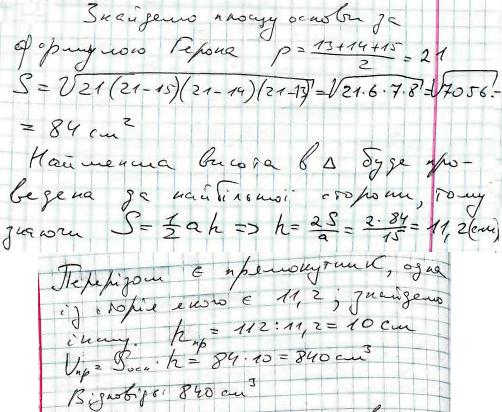 Знайдемо площу основи за
формулою Герона p = (13+14+15)/2 = 21
S = √(21(21-15)(21-14)(21-13)) = √(21·6·7·8) = √7056 =
= 84 см²
Найменша висота в Δ буде про-
ведена до найбільшої сторони, тому
знаючи S = 1/2 ah => h = 2S/a = 2·84/15 = 11,2 (см)
Перерізом є прямокутник, одна
із сторін якого є 11,2; знайдемо
іншу. h пр = 112 : 11,2 = 10 см
Vпр = Sосн · h = 84·10 = 840 см³
Відповідь: 840 см³